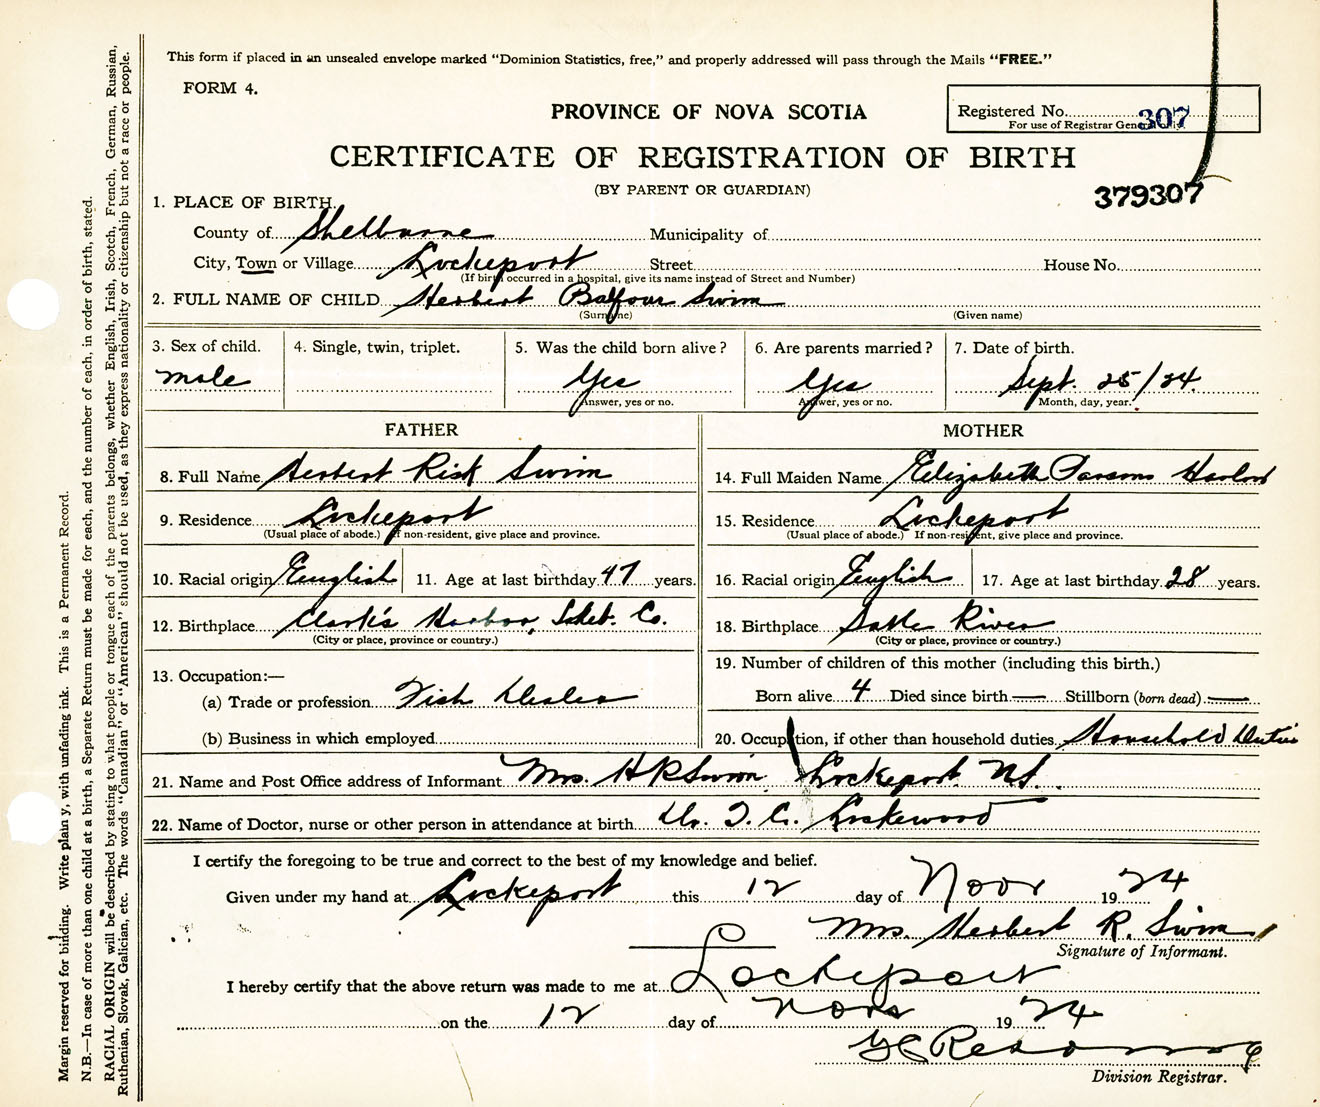 This form if placed in an unsealed envelope marked "Dominion Statistics, free," and properly addressed will pass through the Mails "FREE."
FORM 4.
PROVINCE OF NOVA SCOTIA
Registered No. 307
For use of Registrar General only.
CERTIFICATE OF REGISTRATION OF BIRTH
(BY PARENT OR GUARDIAN)
379307
1. PLACE OF BIRTH
County of Shelburne Municipality of
City, Town or Village Lockeport Street House No.
(If birth occurred in a hospital, give its name instead of Street and Number)
2. FULL NAME OF CHILD Herbert Balfour Swim
(Surname) (Given name)
3. Sex of child. 4. Single, twin, triplet. 5. Was the child born alive? 6. Are parents married? 7. Date of birth.
male Yes Yes Sept. 25/24.
Answer, yes or no. Answer, yes or no. Month, day, year.
FATHER MOTHER
8. Full Name Herbert Risk Swim 14. Full Maiden Name Elizabeth Parsons
9. Residence Lockeport 15. Residence Lockeport
(Usual place of abode.) If non-resident, give place and province. (Usual place of abode.) If non-resident, give place and province.
10. Racial origin English 11. Age at last birthday 47 years. 16. Racial origin English 17. Age at last birthday 28 years.
12. Birthplace Clark's Harbor, Shel. Co. 18. Birthplace Sable River
(City or place, province or country.) (City or place, province or country.)
13. Occupation:— 19. Number of children of this mother (including this birth.)
(a) Trade or profession Fish Dealer Born alive 4 Died since birth — Stillborn (born dead) —
(b) Business in which employed 20. Occupation, if other than household duties Household Duties
21. Name and Post Office address of Informant Mrs. H R Swim Lockeport N.S.
22. Name of Doctor, nurse or other person in attendance at birth Dr. Lockewood
I certify the foregoing to be true and correct to the best of my knowledge and belief.
Given under my hand at Lockeport this 12 day of Novr 1924
Mrs. Herbert R. Swim
Signature of Informant.
I hereby certify that the above return was made to me at Lockeport
on the 12 day of Novr 1924
Division Registrar.
Margin reserved for binding. Write plainly, with unfading ink. This is a Permanent Record.
N.B.—In case of more than one child at a birth, a Separate Return must be made for each, and the number of each, in order of birth, stated.
RACIAL ORIGIN will be described by stating to what people or tongue each of the parents belongs, whether English, Irish, Scotch, French, German, Russian,
Ruthenian, Slovak, Galician, etc. The words "Canadian" or "American" should not be used, as they express nationality or citizenship but not a race or people.